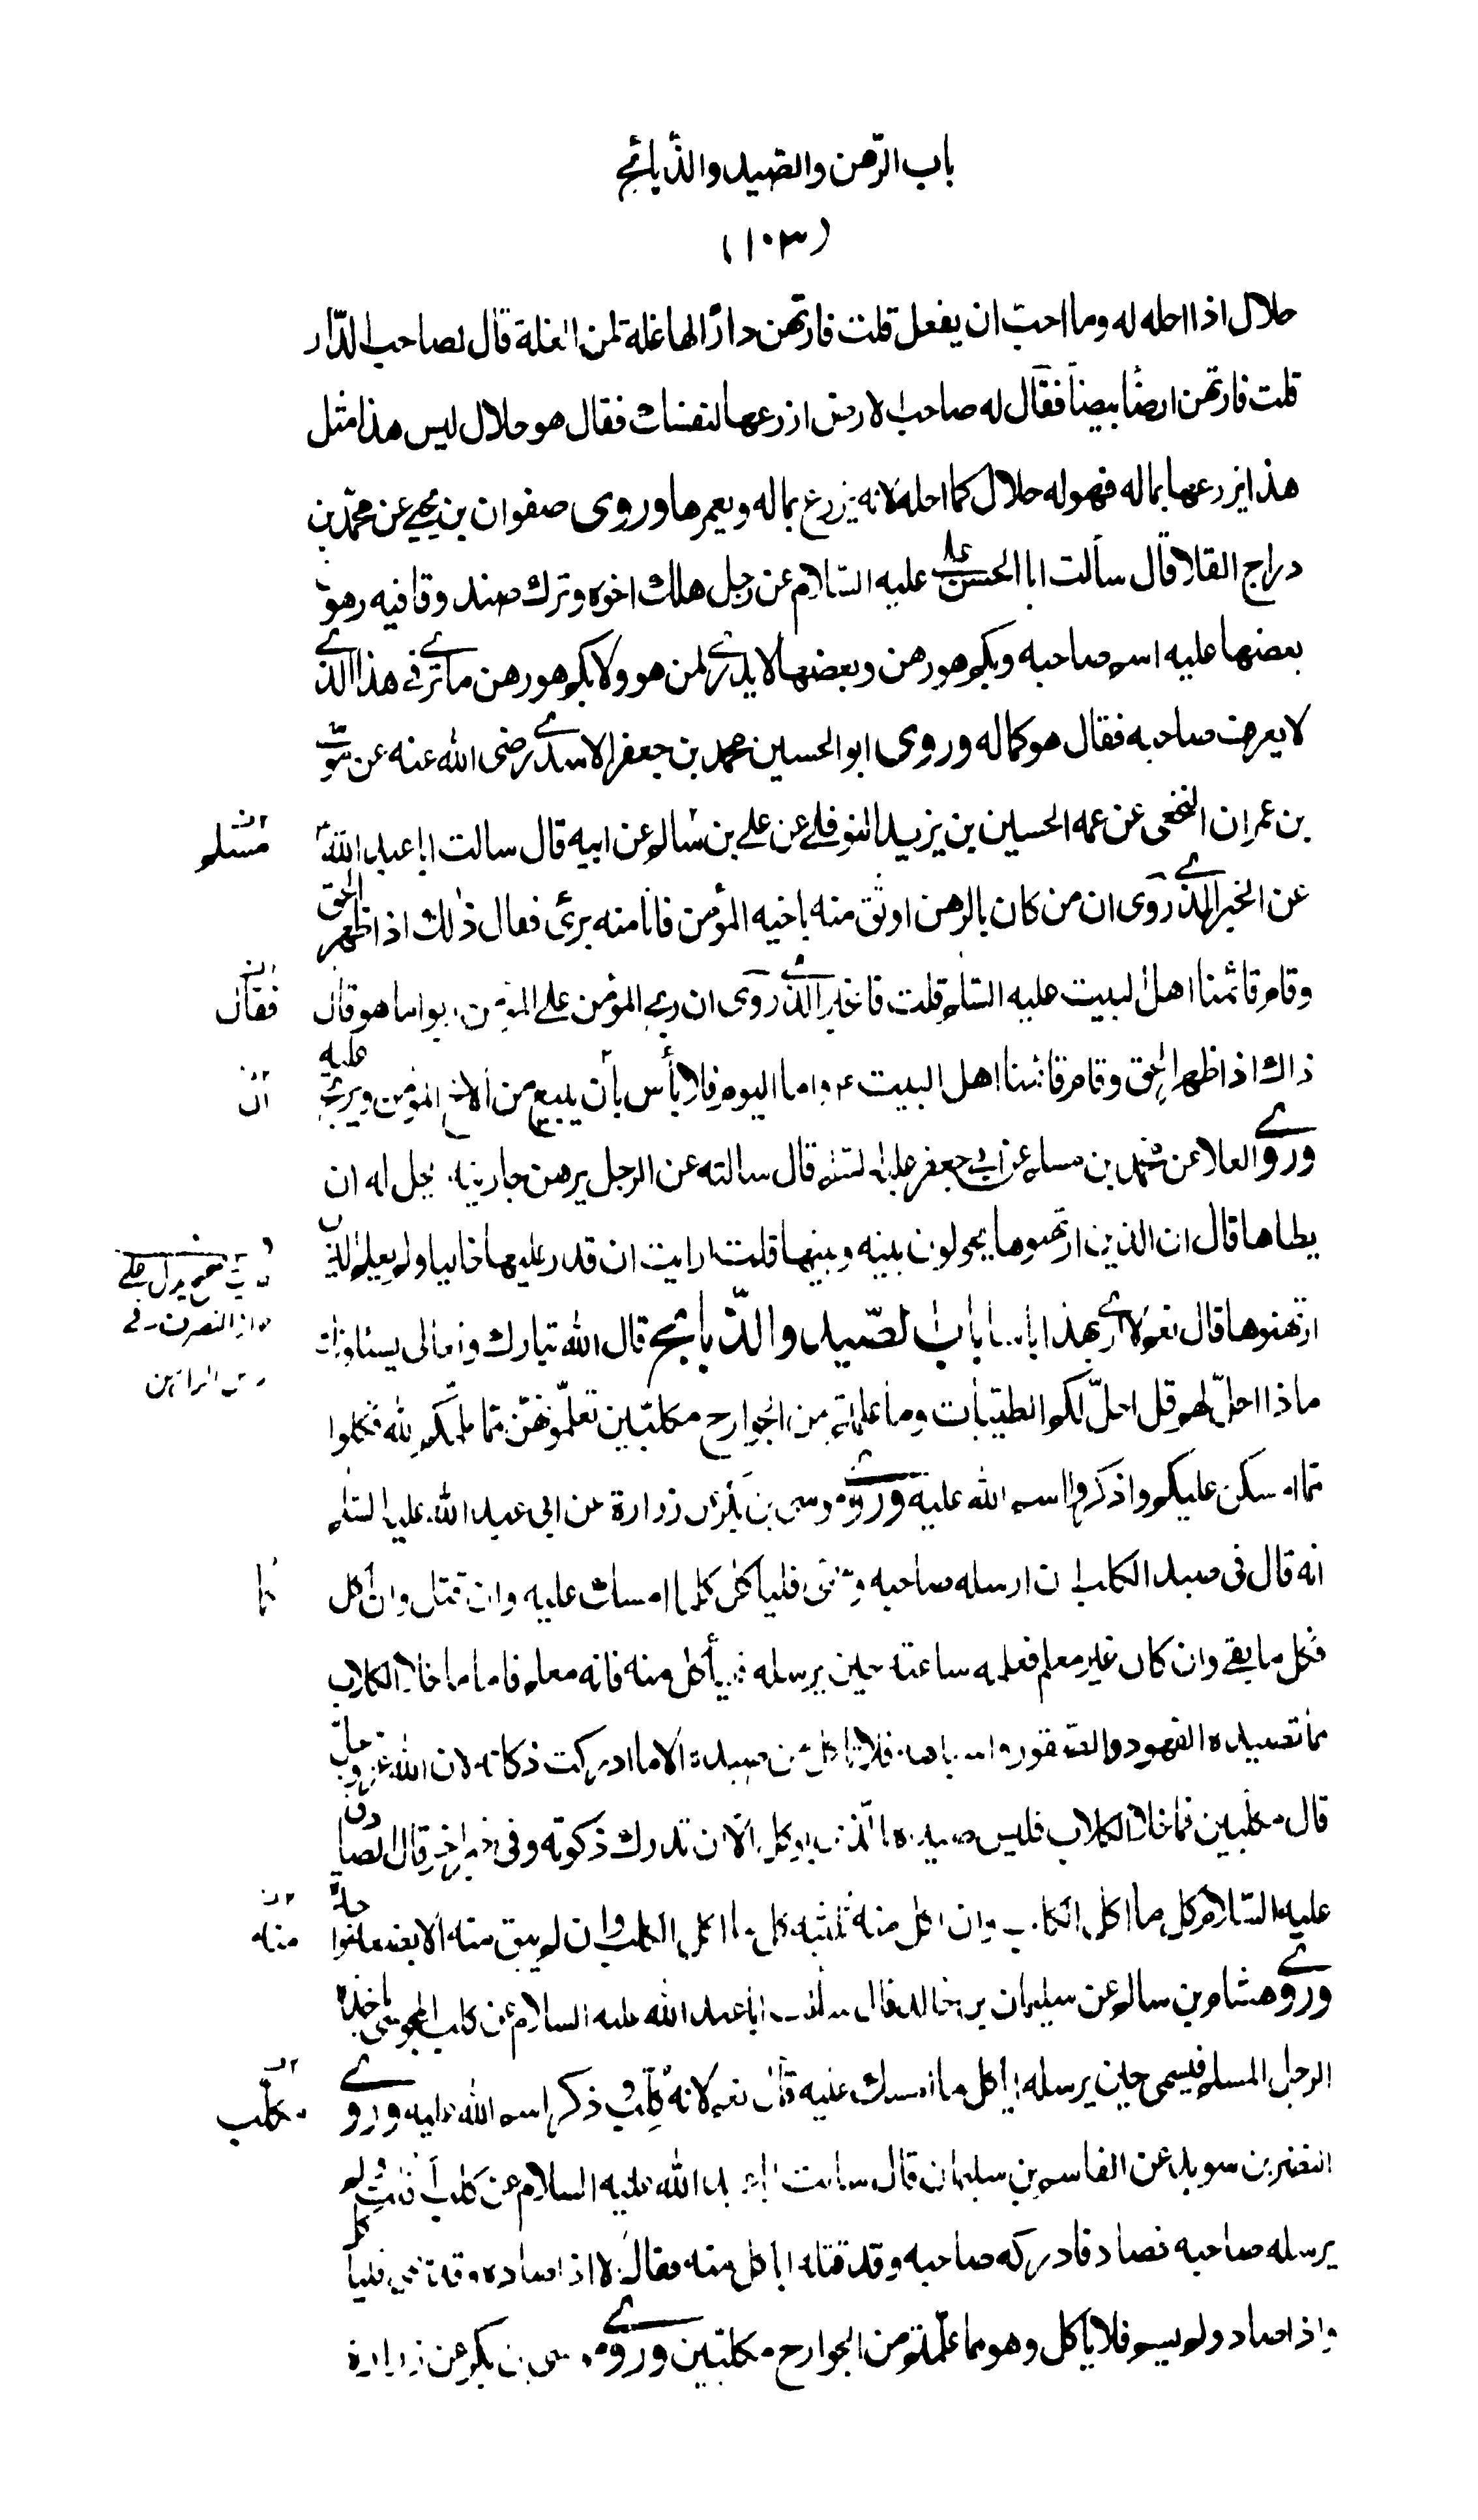 باب الرّهن والصّيد والذّبائح
(١٠٣)
حلال اذا احله له وما احبّ ان يفعل قلت فارتهن دارًا لها غلة لمن الغلة قال لصاحب الدّار
قلت فارتهن ارضًا بيضاً فقال له صاحب الارض ازرعها لنفسك فقال هو حلال ليس هذا مثل
هذا يزرعها بماله فهو له حلال كما احله لانه يزرع بماله ويعمرها وروى صفوان بن يحيى عن محمّد بن
دراج القلا قال سألت ابا الحسن عليه السّلام عن رجل هلك اخوه وترك صندوقا فيه رهون
بعضها عليه اسم صاحبه وبكم هو رهن وبعضها لا يدرى لمن هو ولا بكم هو رهن ما ترى فى هذا الذى
لا يعرف صاحبه فقال هو كماله وروى ابو الحسين محمد بن جعفر الاسدى رضى الله عنه عن موسى
بن عمران النخعى عن عمه الحسين بن يزيد النوفلى عن على بن سالم عن ابيه قال سالت ابا عبد الله ع
مسلم
عن الخبر الذى روى ان من كان بالرهن اوثق منه باخيه المؤمن فانا منه برئ فقال ذلك اذا ظهر الحق
وقام قائمنا اهل البيت عليه السّلم قلت فالخبر الذى روى ان ربح المؤمن على المؤمن ربوا ما هو قال
فقال
ذاك اذا ظهر الحق وقام قائمنا اهل البيت ع واما اليوم فلا بأس بأن يبيع من الاخ المؤمن ويربح عليه
ان
وروى العلا عن محمد بن مسلم عن ابى جعفر عليه السّلم قال سالته عن الرجل يرهن جاريته يحل له ان
يطاها قال ان الذين ارتهنوها يحولون بينه وبينها قلت ارايت ان قدر عليها خاليا ولم يعلم الذين
ارتهنوها قال نعم لا ارى بهذا باسا باب الصّيد والذّبائح قال الله تبارك وتعالى يسئلونك
ماذا احلّ لهم قل احلّ لكم الطيّبات وما علمتم من الجوارح مكلّبين تعلّمونهنّ ممّا علّمكم الله فكلوا
ممّا امسكن عليكم واذكروا اسم الله عليه وروى موسى بن بكر عن زرارة عن ابى عبد الله عليه السّلم
انه قال فى صيد الكلب ان ارسله صاحبه وسمّى فلياكل كل ما امسك عليه وان قتل وان اكل
مما
فكل ما بقى وان كان غير معلم فعلمه ساعته حين يرسله فليأكل منه فانه معلم فاما ما خلا الكلاب
مما تصيده الفهود والصقور واشباهه فلا تاكل من صيده الا ما ادركت ذكاته لان الله عزّ وجلّ
قال مكلّبين فما خلا الكلاب فليس صيده بالذى يوكل الّا ان تدرك ذكوته وفى خبر اخر قال الصادق
عليه السّلام كل ما اكل الكلب وان اكل منه ثلثيه كل ما اكل الكلب وان لم يبق منه الا بضعة واحدة
منه
وروى هشام بن سالم عن سليمان بن خالد قال سألت ابا عبد الله عليه السلام عن كلب المجوسى ياخذه
الرجل المسلم فيسمى حين يرسله اياكل ما امسك عليه قال نعم لانه مكلّب وذكر اسم الله عليه وروى
مكلّب
النضر بن سويد عن القاسم بن سليمان قال سالت ابا عبد الله عليه السلام عن كلب افلت ولم
يرسله صاحبه فصاد فادركه صاحبه وقد قتله اياكل منه فقال لا اذا صاده وقد سمى فلياكل
واذا صاد ولم يسم فلا يأكل وهو مما علّمتم من الجوارح مكلّبين وروى موسى بن بكر عن زرارة